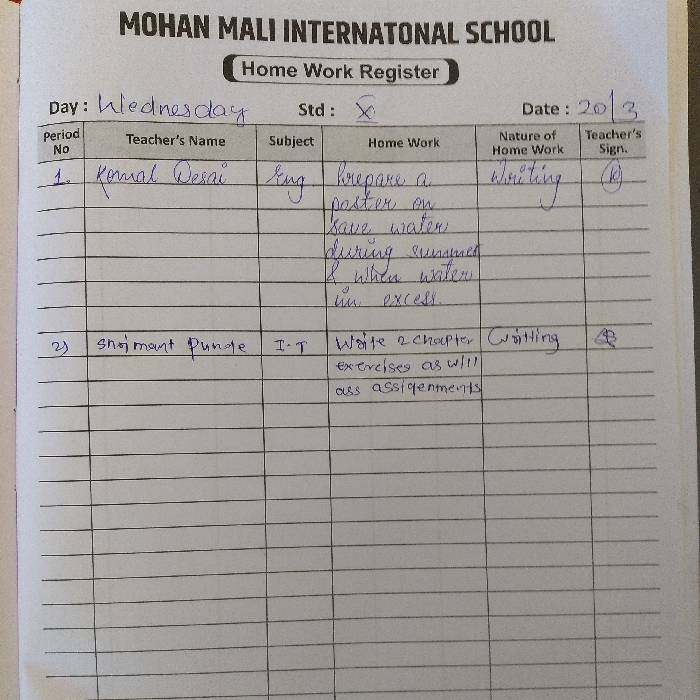 MOHAN MALI INTERNATONAL SCHOOL
Home Work Register
Day : Wednesday Std : X Date : 20/3
Period No Teacher's Name Subject Home Work Nature of Home Work Teacher's Sign.
1. Komal Desai Eng Prepare a Writing
poster on
save water
during summer
& when water
in excess.
2) Shrimant Punde I-T Write 2 chapter Writting
exercises as will
ass assigenments